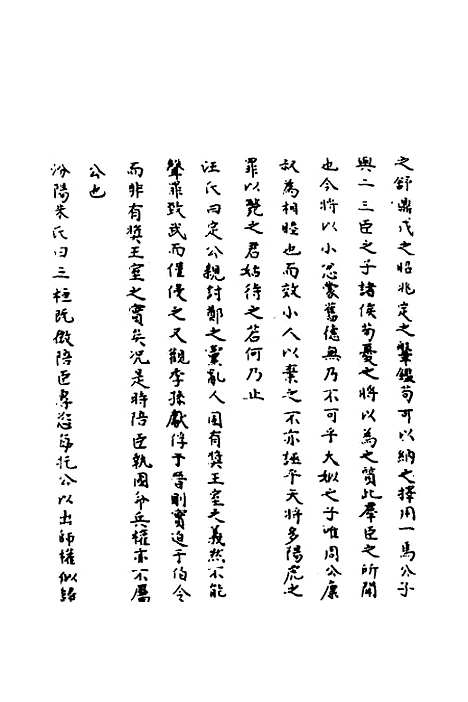 之舒鼎成之昭兆定之鞶鑑苟可以納之擇用一焉公子
與二三臣之子諸侯苟憂之將以為之質此羣臣之所聞
也今將以小忿蒙舊德無乃不可乎大姒之子唯周公康
叔為相睦也而效小人以棄之不亦誣乎天將多陽虎之
罪以斃之君姑待之若何乃止
汪氏曰定公親討鄭之黨亂人固有獎王室之義然不能
聲罪致武而僅侵之又觀季孫獻俘于晉則實迫于伯令
而非有獎王室之實矣況是時陪臣執國命兵權亦不屬
公也
汾陽朱氏曰三桓既微陪臣專恣每托公以出師權似歸